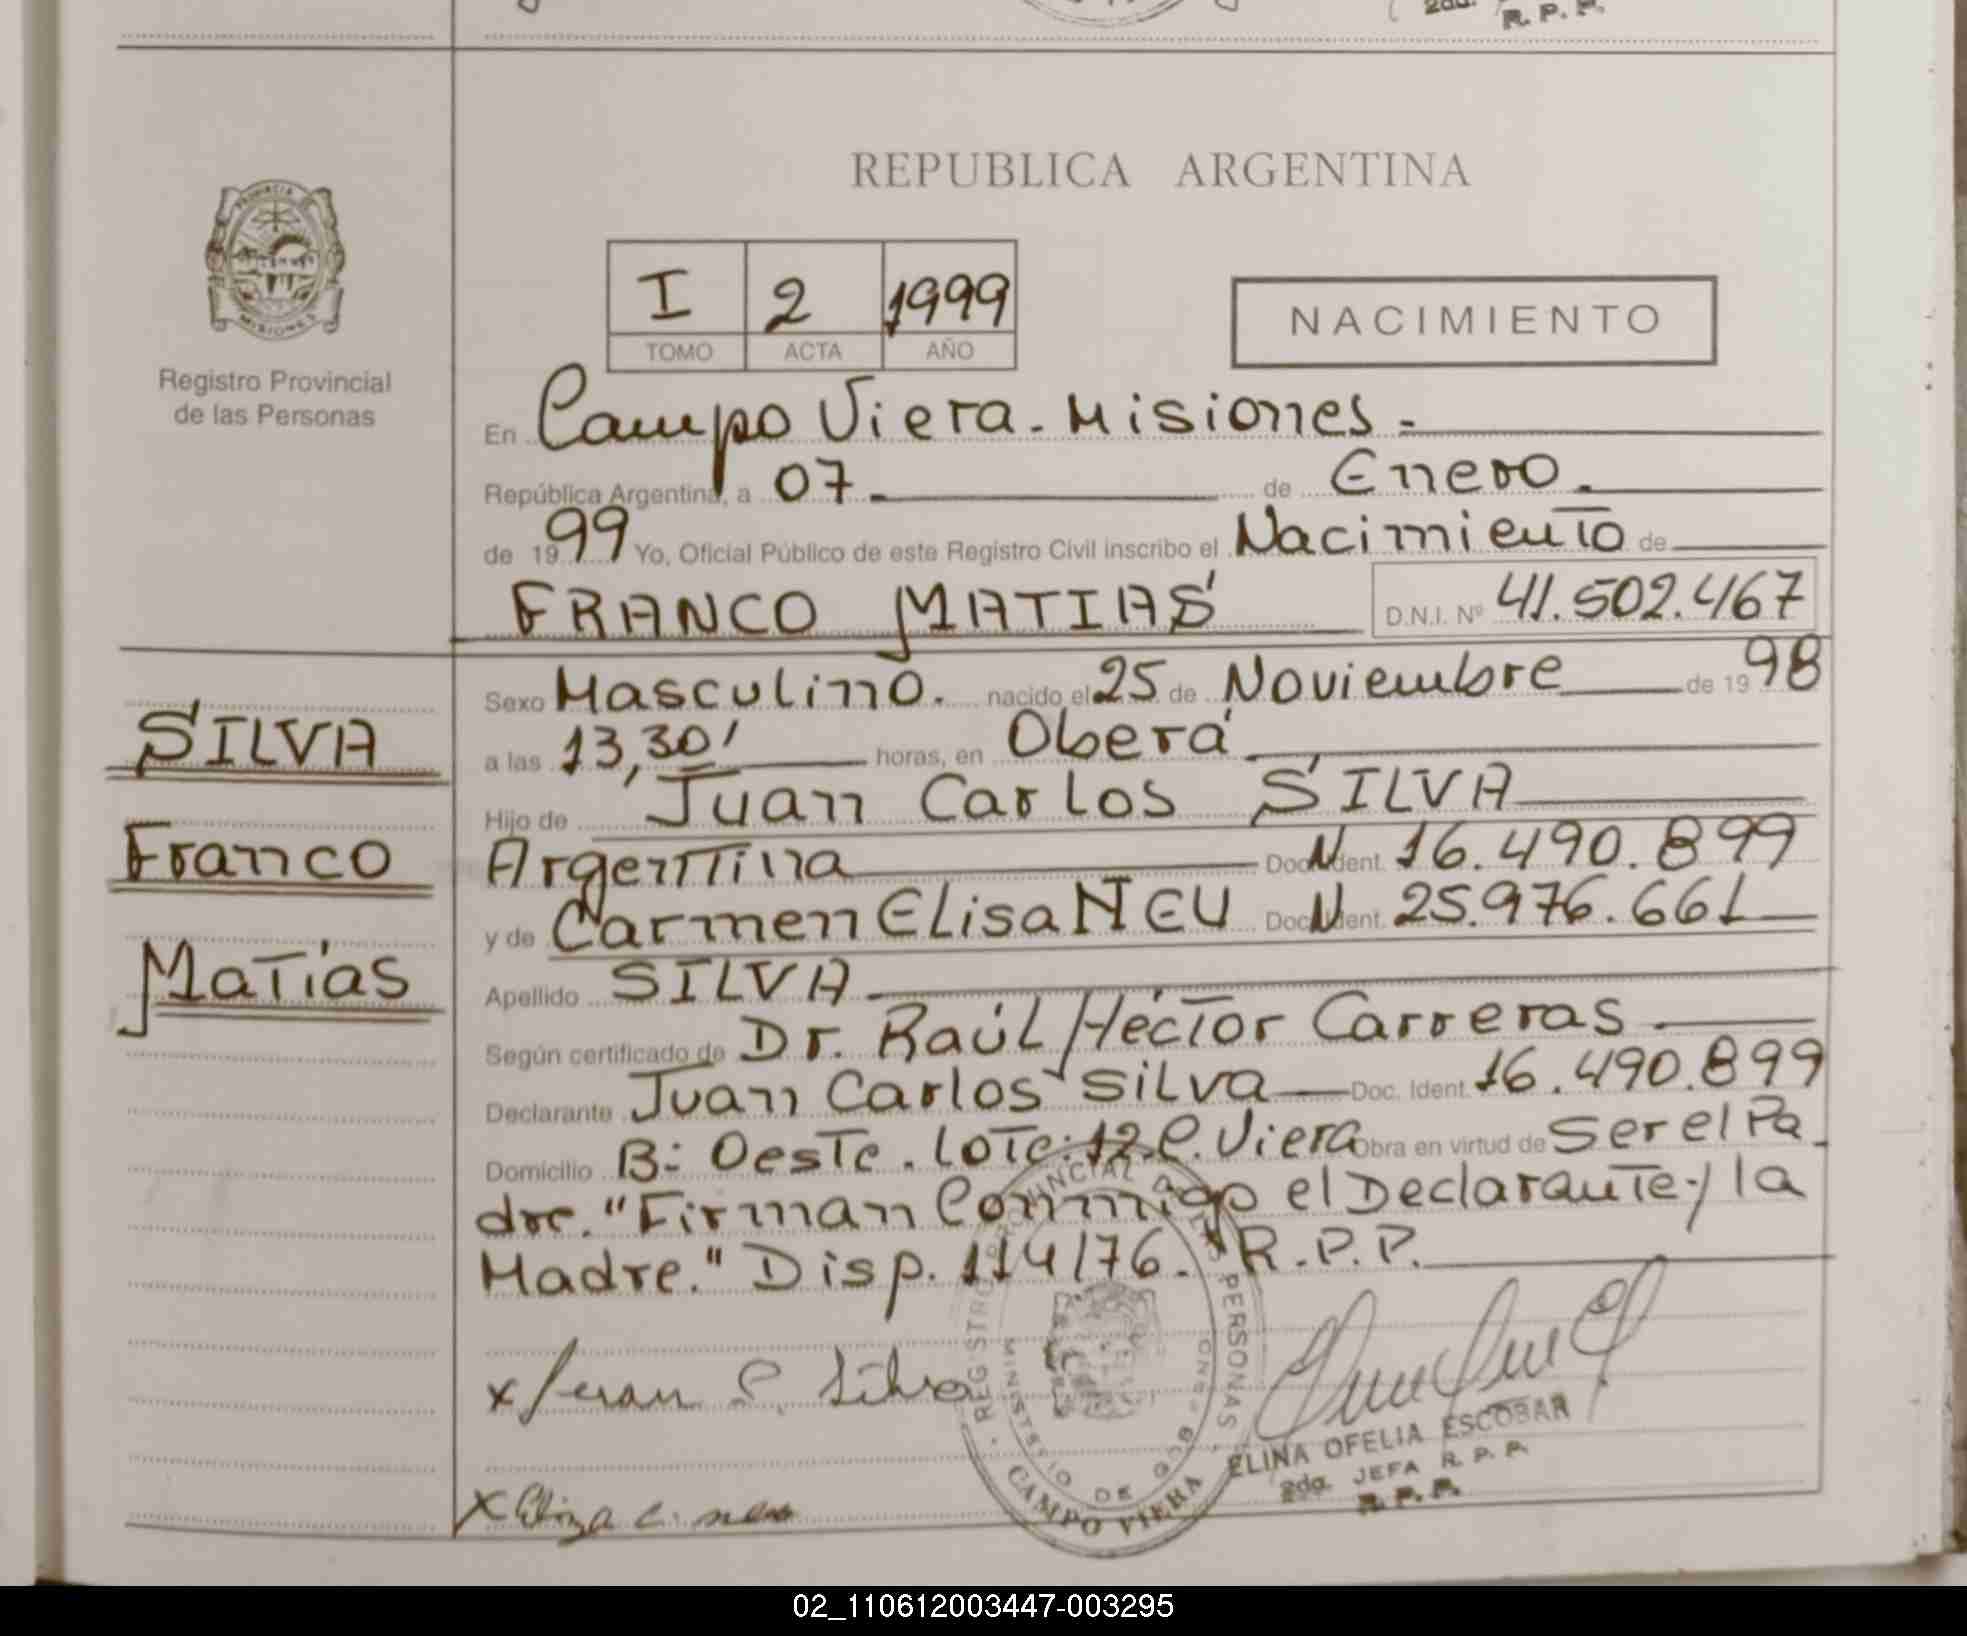 2da.
R. P. P.
REPUBLICA ARGENTINA
PROVINCIA
MISIONES
Registro Provincial
de las Personas
I 2 1999
TOMO ACTA AÑO
NACIMIENTO
En Campo Viera - Misiones.-
República Argentina, a 07.- de Enero.
de 1999 Yo, Oficial Público de este Registro Civil inscribo el Nacimiento de
FRANCO MATIAS D.N.I. Nº 41.502.467
SILVA
Franco
Matías
Sexo Masculino. nacido el 25 de Noviembre de 1998
a las 13,30' horas, en Oberá
Hijo de Juan Carlos SILVA
Argentina Doc. Ident. N 16.490.899
y de Carmen Elisa NEU Doc. Ident. N 25.976.661
Apellido SILVA
Según certificado de Dr. Raúl Héctor Carreras
Declarante Juan Carlos Silva Doc. Ident. 16.490.899
Domicilio B: Oeste. Lote: 12. C. Viera Obra en virtud de Ser el Pa-
dre. "Firman Conmigo el Declarante y la
Madre." Disp. 114/76. R.P.P.
x Juan C. Silva
REGISTRO PROVINCIAL DE LAS PERSONAS
MINISTERIO DE GOB.
CAMPO VIERA
ELINA OFELIA ESCOBAR
2da. JEFA R. P. P.
R. P. P.
x Eliza C. neu
02_110612003447-003295